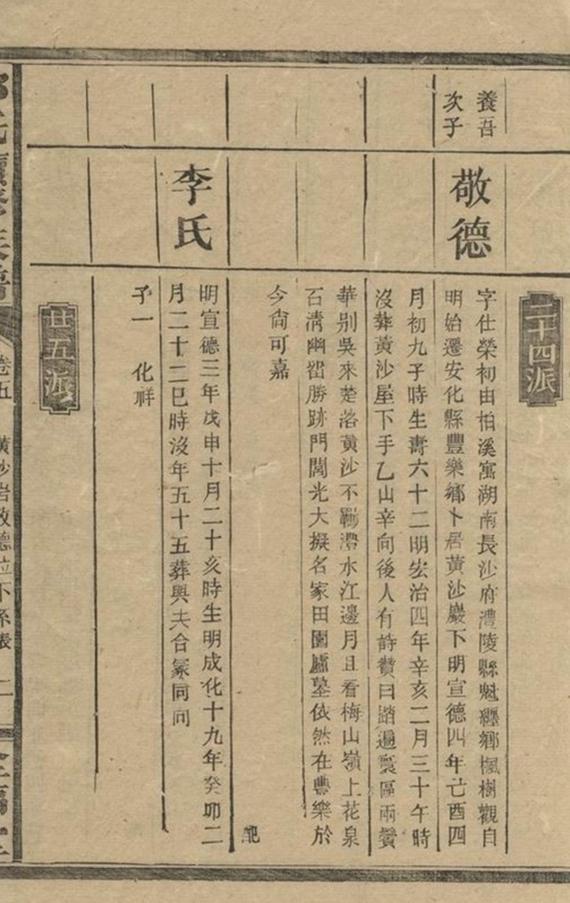 二十四派
養吾
次子
敬德
字仕榮初由柏溪寓湖南長沙府澧陵縣魁纒鄉楓樹觀自
明始遷安化縣豐樂鄉卜居黃沙巖下明宣德四年亡酉四
月初九子時生壽六十二明宏治四年辛亥二月三十午時
沒葬黃沙屋下手乙山辛向後人有詩贊曰踏遍寰區兩鬢
華别吳來楚洛黃沙不羈澧水江邊月且看梅山嶺上花泉
石淸幽畱勝跡門閭光大擬名家田園廬墓依然在豊樂於
今尙可嘉
李氏
明宣德三年戊申十月二十亥時生明成化十九年癸卯二
月二十二巳時沒年五十五葬與夫合冢同向
子一 化祥
廿五派
氏續修族譜
卷五
黃沙岩敬德位下系表
二